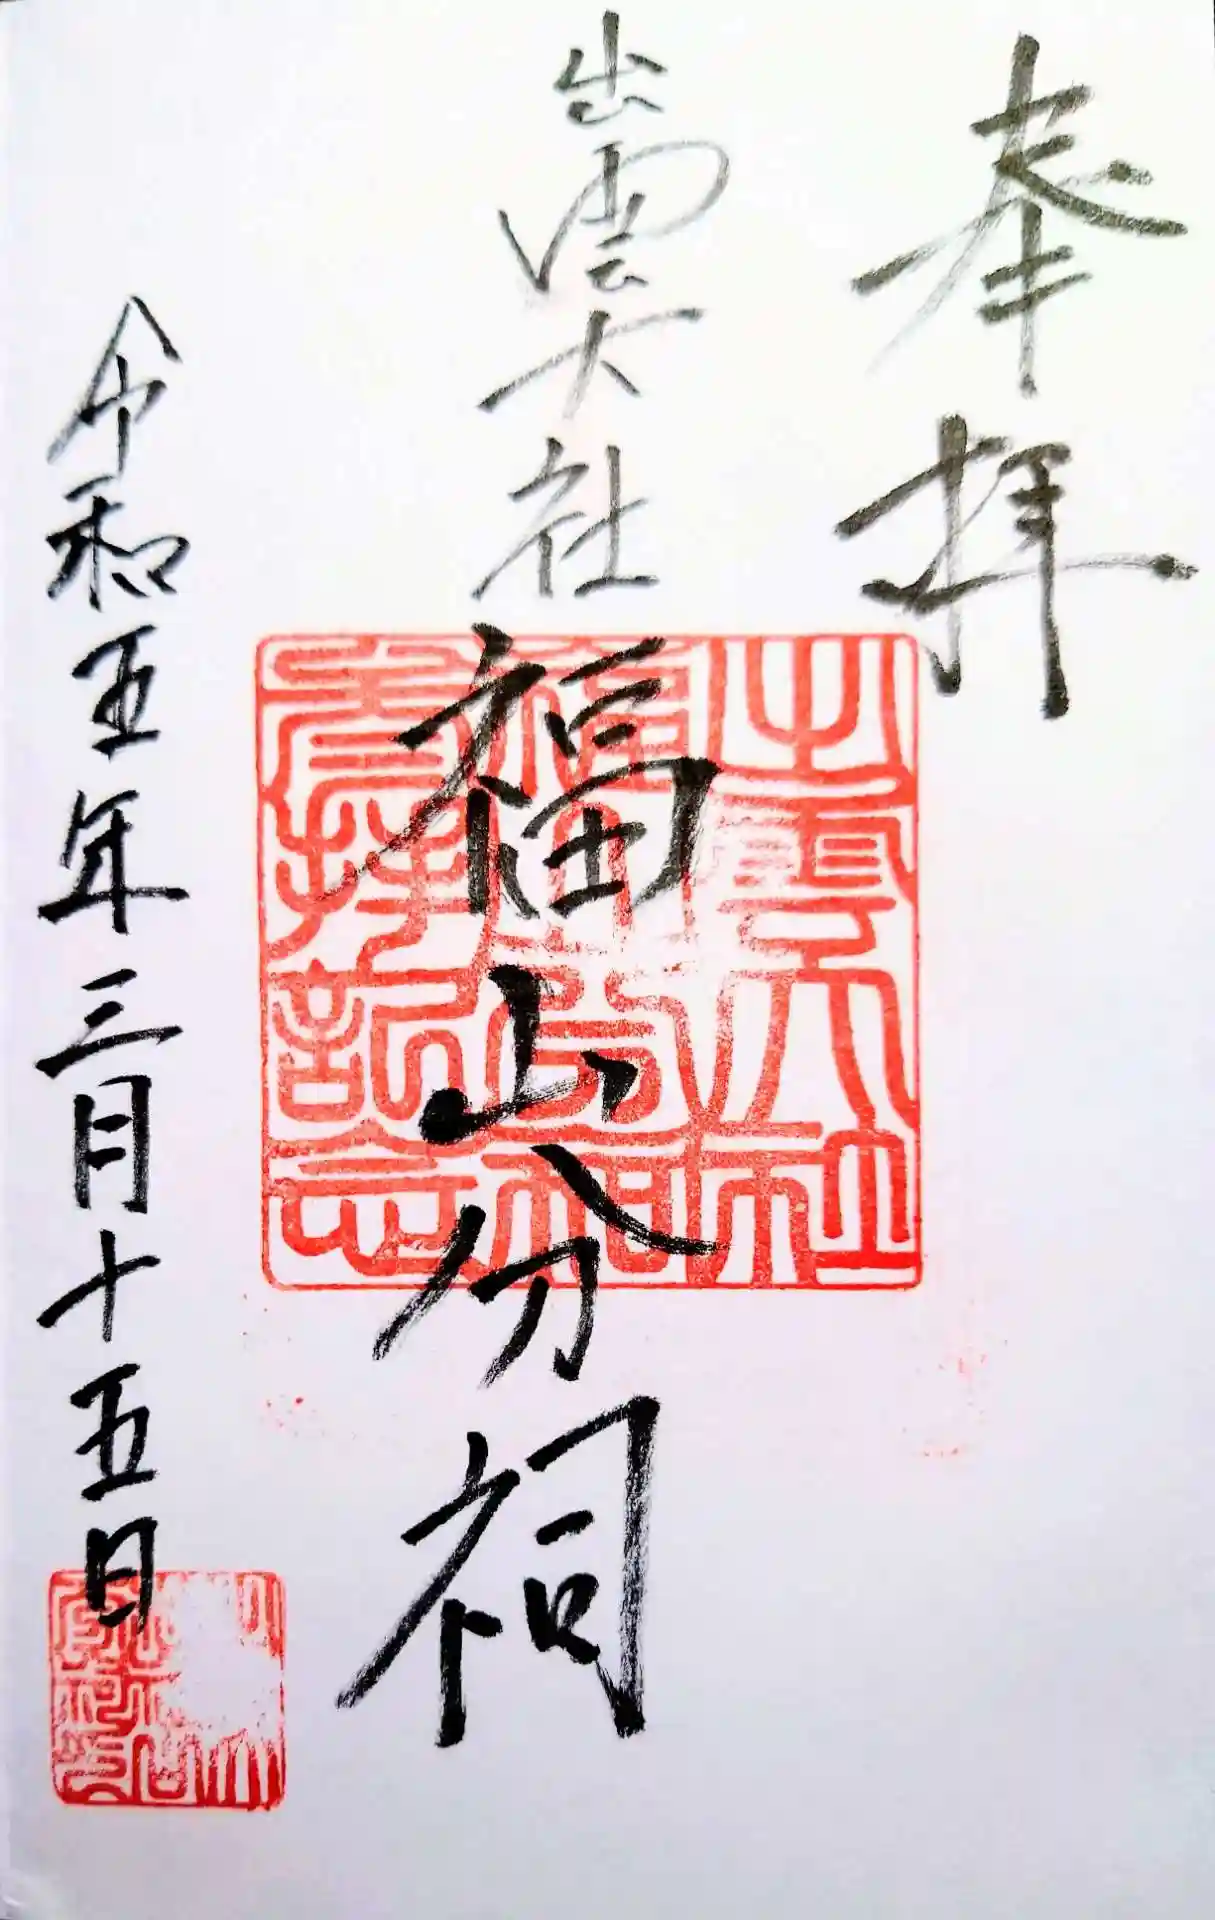 奉拝
出雲大社
福山分祠
令和五年三月十五日
出雲大社
福山分祠
奉拝記念